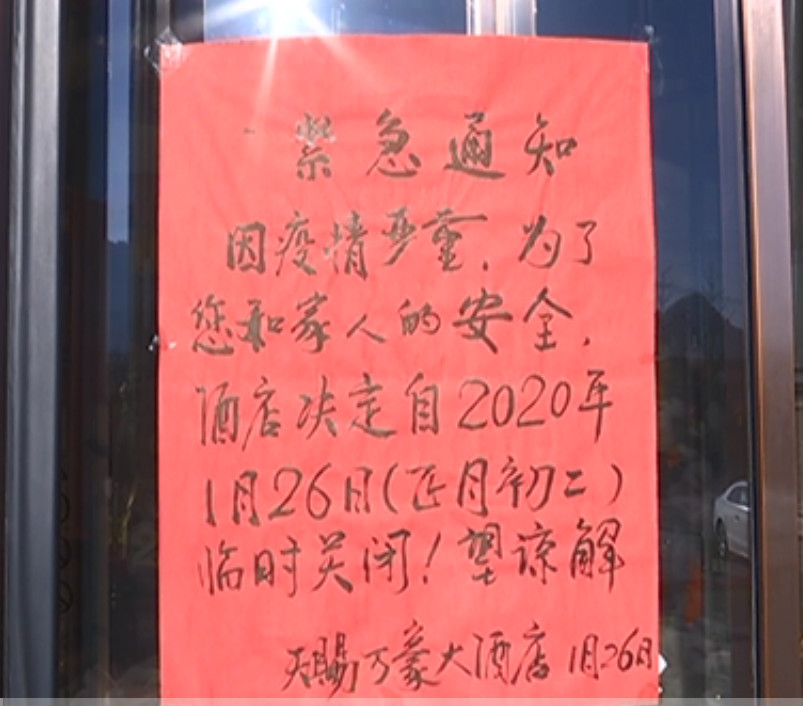 紧急通知
因疫情严重,为了
您和家人的安全,
酒店决定自2020年
1月26日(正月初二)
临时关闭!望谅解
天賜万豪大酒店 1月26日